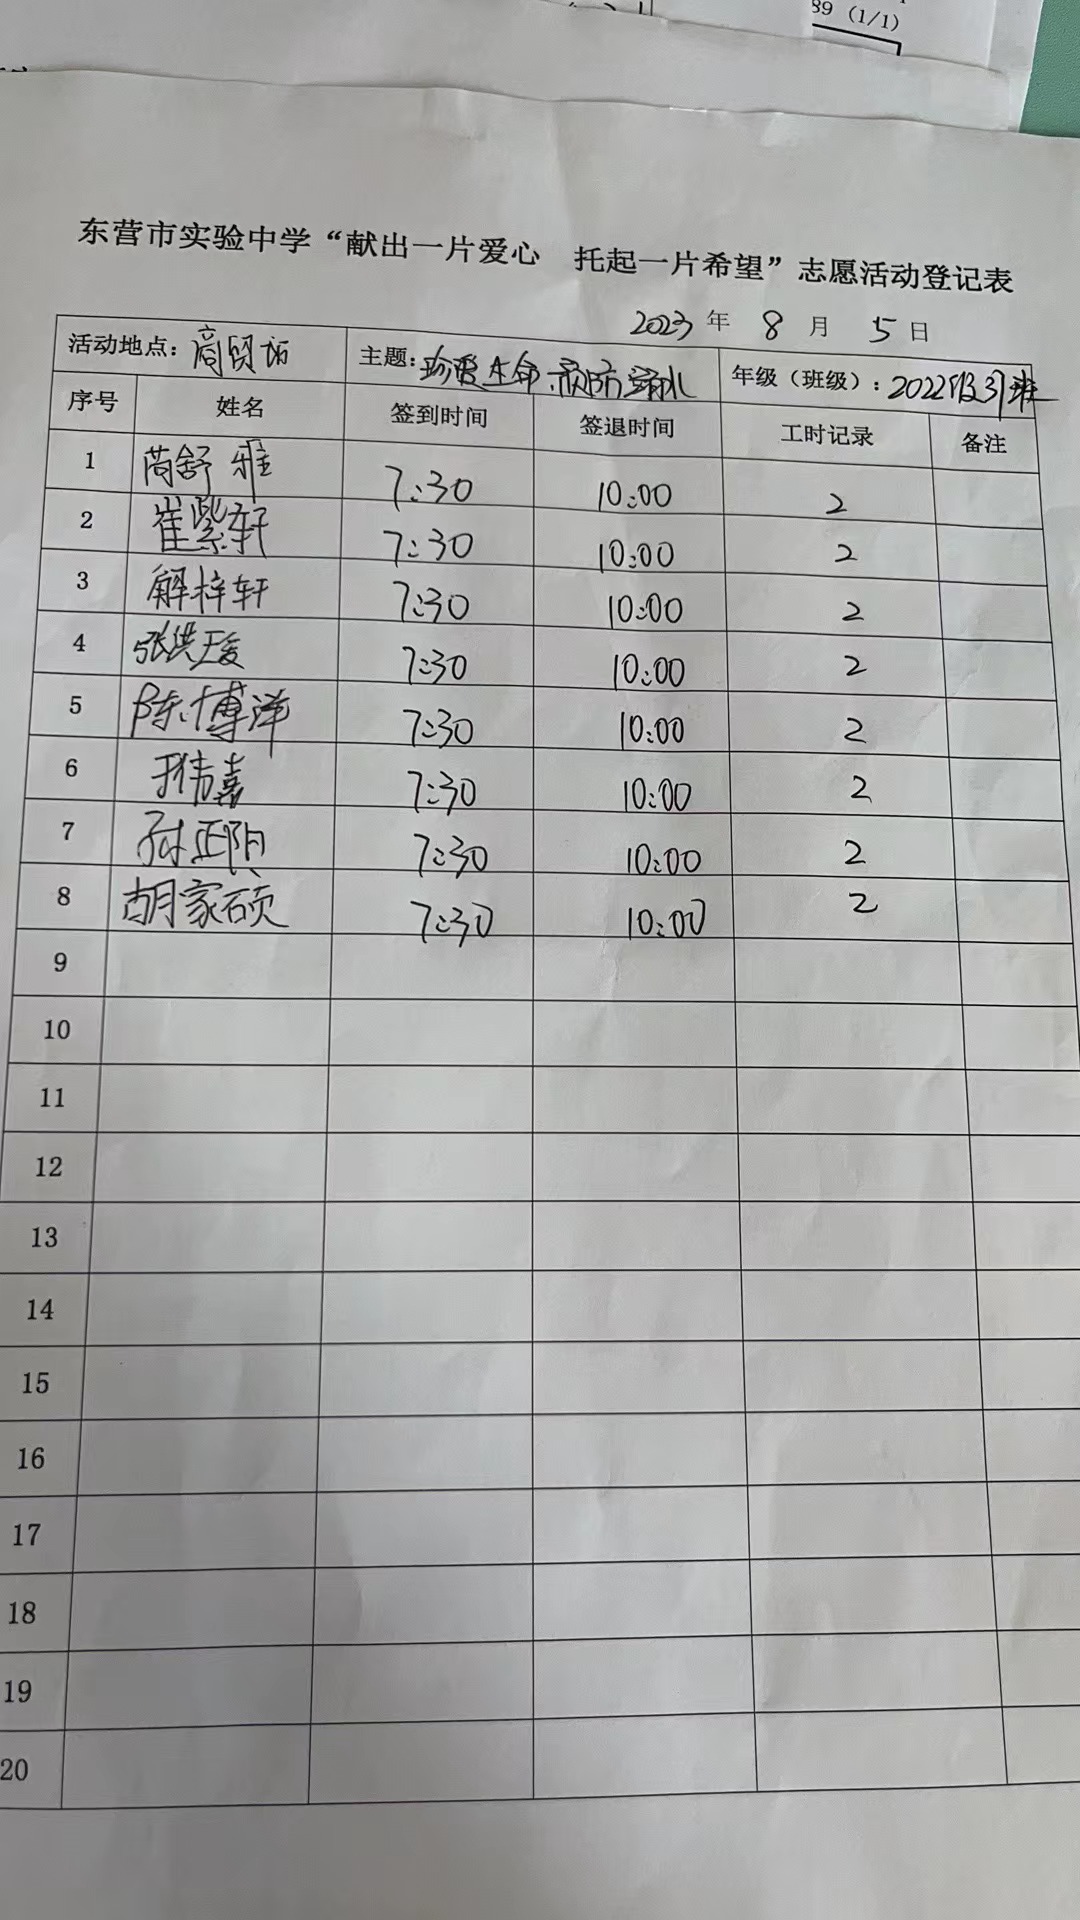 89 (1/1)
东营市实验中学“献出一片爱心 托起一片希望”志愿活动登记表
2023 年 8 月 5 日
活动地点：商贸城 主题：珍爱生命 预防溺水 年级（班级）：2022级31班
序号 姓名 签到时间 签退时间 工时记录 备注
1 舒雅 7:30 10:00 2
2 崔紫轩 7:30 10:00 2
3 解梓轩 7:30 10:00 2
4 张洪瑗 7:30 10:00 2
5 陈博洋 7:30 10:00 2
6 于伟嘉 7:30 10:00 2
7 孙正阳 7:30 10:00 2
8 胡家硕 7:30 10:00 2
9
10
11
12
13
14
15
16
17
18
19
20